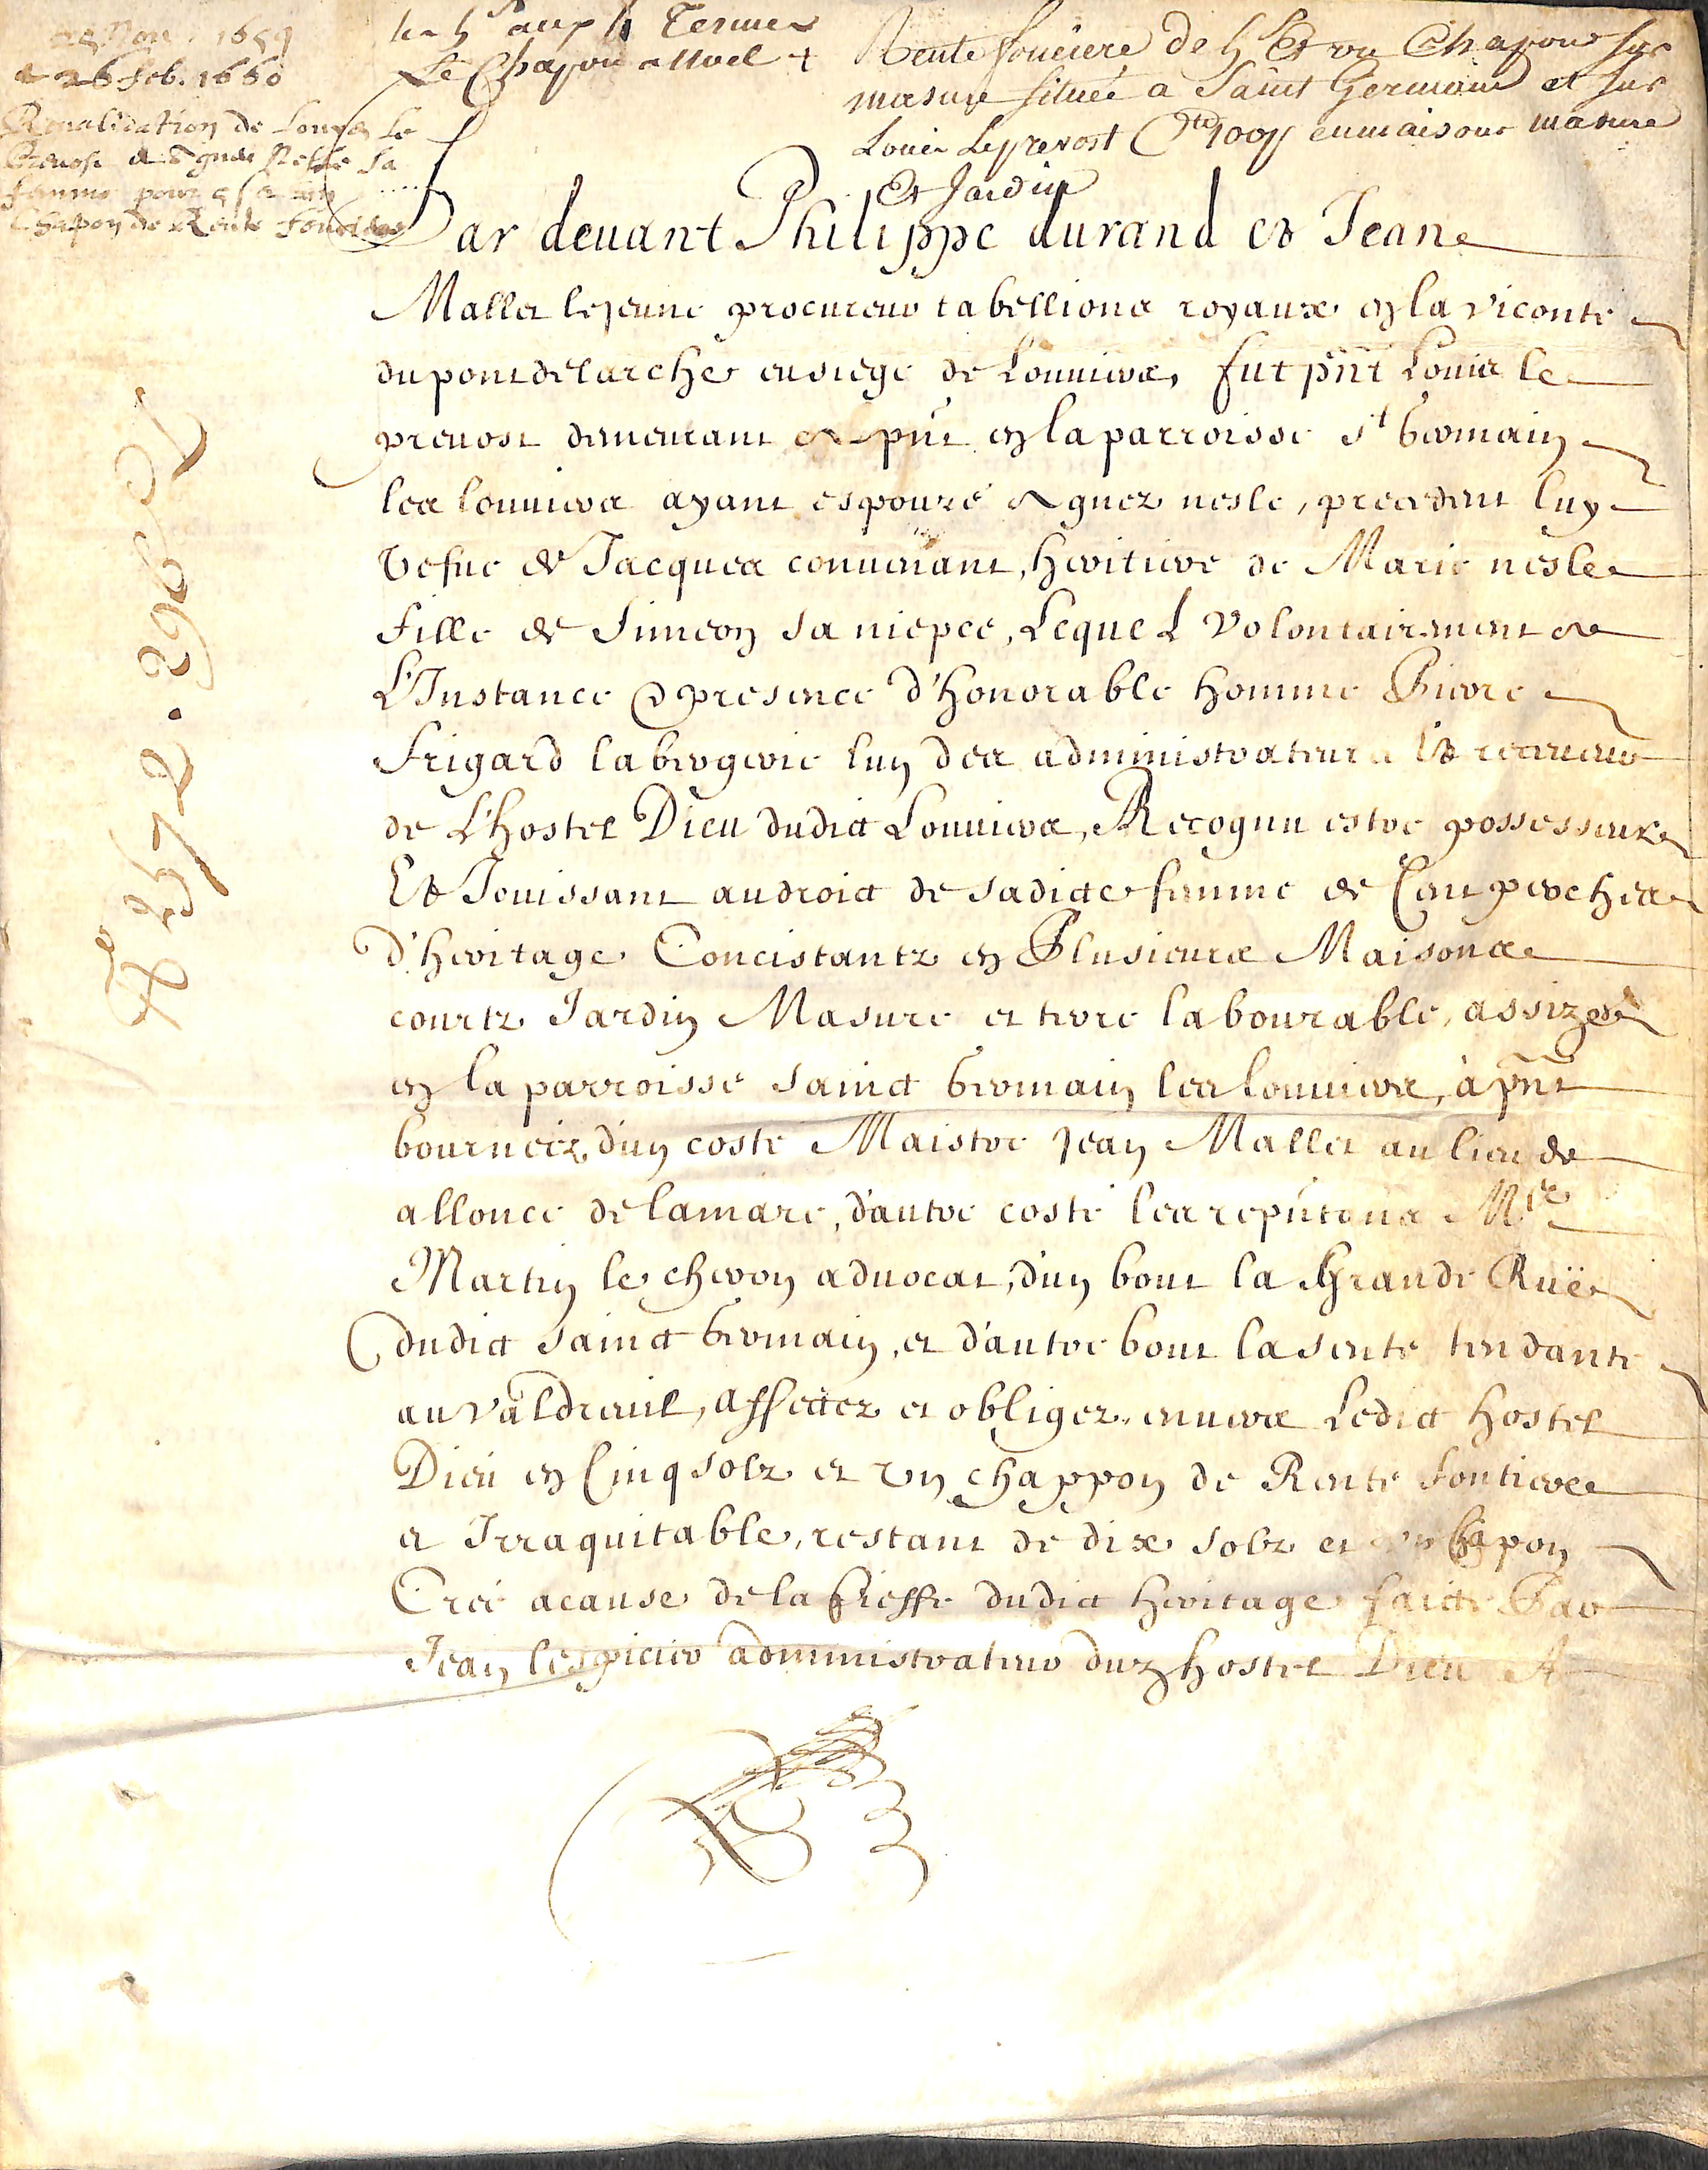 25 Nov. 1659
& 26 feb. 1660
Revalidation de Louys Le
Prevost & Agnes Nesle Sa
femme pour 5 s & un
Chapon de Rente fonciere
les 5 s aux 4 Termes
Le Chapon a Noel
Rente fonciere de 5 s Et un Chapon sur
masure située a Saint Germain et sur
Louis Leprevost en maisons masure
Et Jardin
Par deuant Philippe durand et Jean
Mallet lejeune procureur tabellions royaux en la viconte
du pontdelarche au siege de Louuiers, fut pnt Louis le
preuost demeurant a pnt en la parroisse st Germain
les louuiers ayant espousé Agnez nesle, precedent luy
vefue de Jacques conuenant, heritiere de Marie nesle
fille de Simeon sa niepce, Lequel volontairement a
L'Instance & presence d'honorable homme Pierre
frigard labergerie lun des administrateurs Et receueur
de L'hostel Dieu dudict Louuiers, Recognu estre possesseur
Et Jouissant au droict de sadicte femme de Cent perches
d'heritage Concistantz en Plusieurs Maisons
courtz Jardin Masure et terre labourable, assizes
en la parroisse sainct Germain les louuiers, à pnt
bournéez, d'un costé Maistre Jean Mallet au lieu de
allonce delamare, d'autre costé les repntans Mre
Martin le cheron aduocat, d'un bout la Grande Ruë
dudict sainct Germain, et d'autre bout la sente tendante
au valdreuil, affectez et obligez enuers Ledict hostel
Dieu en Cinq solz et vn chappon de Rente fontiere
et Irraquitable, restant de dix solz et vn chapon
Créé acause de la fieffe dudict heritage faicte Par
Jean lespicier administrateur dud hostel Dieu A
N° 257 2. 296